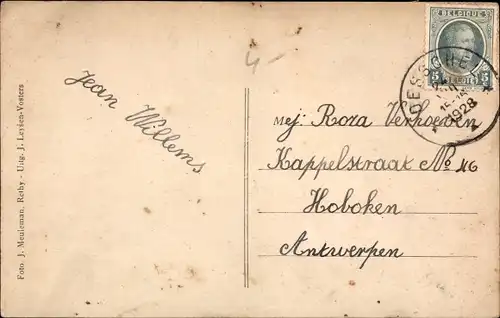 Foto. J. Meuleman, Rethy - Uitg. J. Leysen-Vosters
Jean Willems
4-
BELGIQUE
5 5
DESSCHEL
1928
Mej Roza Verhoeven
Kappelstraat No 46
Hoboken
Antwerpen